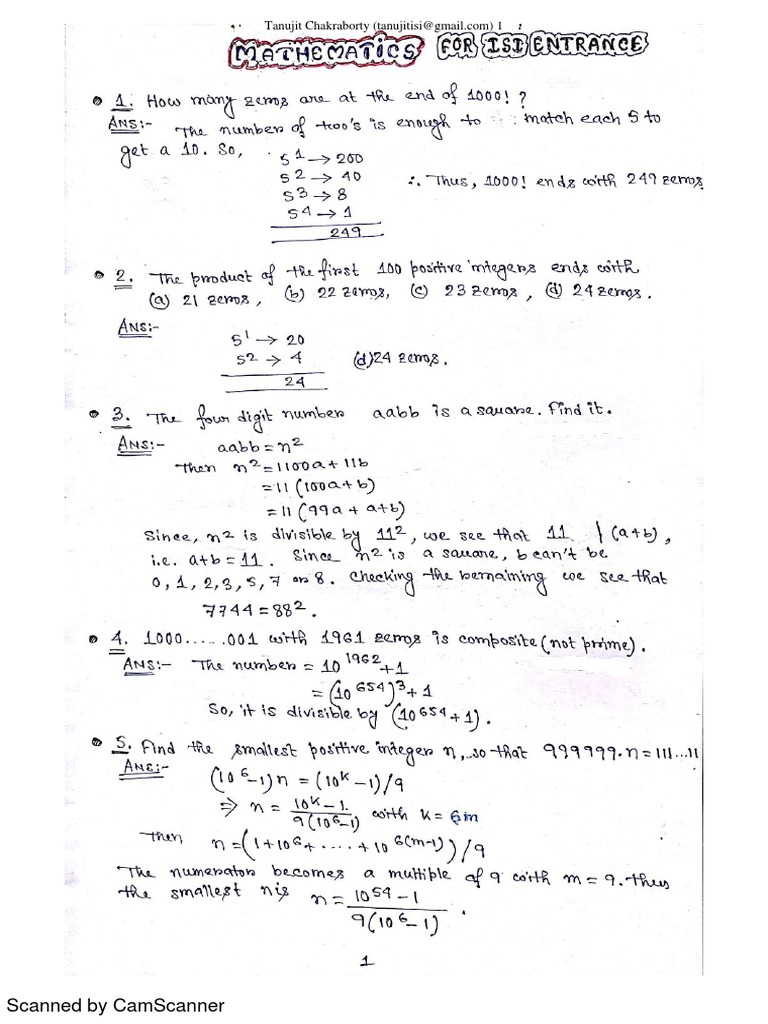 Tanujit Chakraborty (tanujitisi@gmail.com) 1
MATHEMATICS FOR ISI ENTRANCE
1. How many zeros are at the end of 1000! ?
ANS:- The number of two's is enough to match each 5 to
get a 10. So,
5¹ → 200
5² → 40
5³ → 8
5⁴ → 1
249
∴ Thus, 1000! ends with 249 zeros
2. The product of the first 100 positive integers ends with
(a) 21 zeros, (b) 22 zeros, (c) 23 zeros, (d) 24 zeros.
ANS:-
5¹ → 20
5² → 4
24
(d) 24 zeros.
3. The four digit number aabb is a square. Find it.
ANS:- aabb = n²
Then n² = 1100a + 11b
= 11 (100a + b)
= 11 (99a + a+b)
Since, n² is divisible by 11², we see that 11 | (a+b),
i.e. a+b = 11. Since n² is a square, b can't be
0, 1, 2, 3, 5, 7 or 8. Checking the remaining we see that
7744 = 88².
4. 1000.....001 with 1961 zeros is composite (not prime).
ANS:- The number = 10¹⁹⁶² + 1
= (10⁶⁵⁴)³ + 1
So, it is divisible by (10⁶⁵⁴ + 1).
5. Find the smallest positive integer n, so that 999999·n = 111...11
ANS:-
(10⁶-1)n = (10ᵏ-1)/9
⇒ n = (10ᵏ-1)/(9(10⁶-1)) with k = 6m
Then n = (1+10⁶+.....+10⁶⁽ᵐ⁻¹⁾)/9
The numerator becomes a multiple of 9 with m = 9. Thus
the smallest n is n = (10⁵⁴-1)/(9(10⁶-1)).
1
Scanned by CamScanner